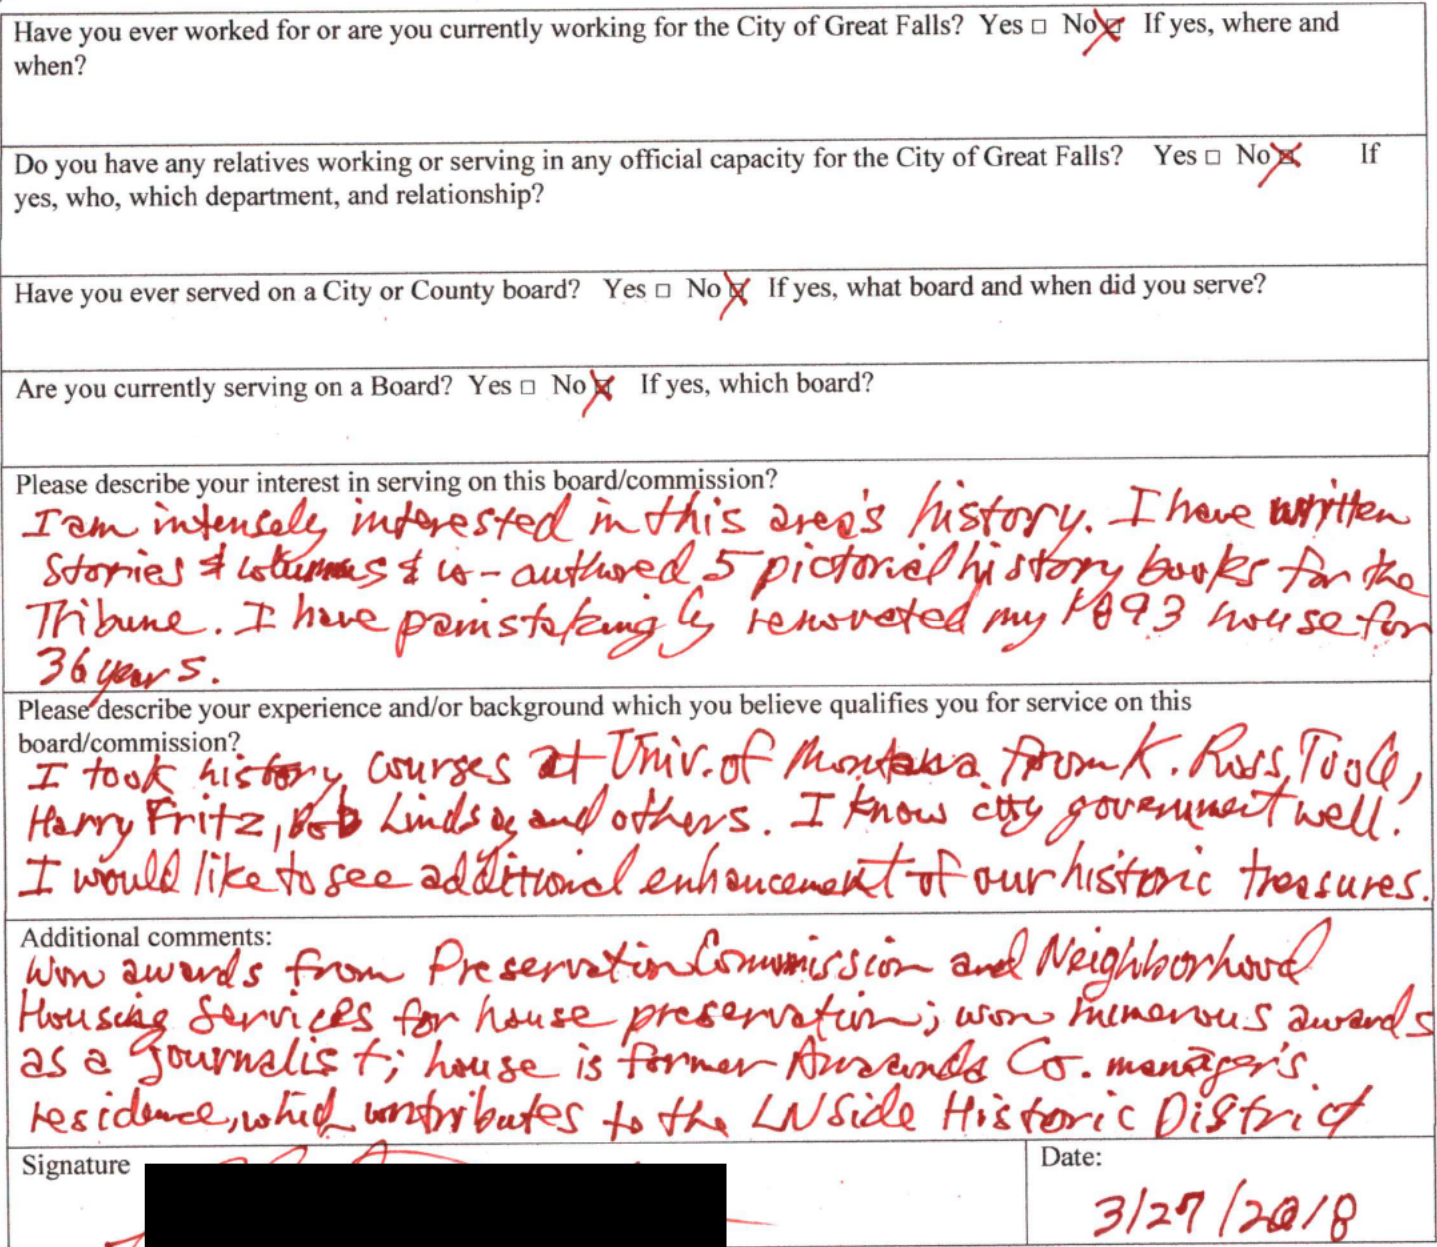 Have you ever worked for or are you currently working for the City of Great Falls? Yes □ No ☒ If yes, where and
when?
Do you have any relatives working or serving in any official capacity for the City of Great Falls? Yes □ No ☒ If
yes, who, which department, and relationship?
Have you ever served on a City or County board? Yes □ No ☒ If yes, what board and when did you serve?
Are you currently serving on a Board? Yes □ No ☒ If yes, which board?
Please describe your interest in serving on this board/commission?
I am intensely interested in this area's history. I have written
stories & columns & co-authored 5 pictorial history books for the
Tribune. I have painstakingly renovated my 1893 house for
36 years.
Please describe your experience and/or background which you believe qualifies you for service on this
board/commission?
I took history courses at Univ. of Montana from K. Ross Toole,
Harry Fritz, Bob Lindsay and others. I know city government well.
I would like to see additional enhancement of our historic treasures.
Additional comments:
Won awards from Preservation Commission and Neighborhood
Housing Services for house preservation; won numerous awards
as a journalist; house is former Anaconda Co. manager's
residence, which contributes to the LNSide Historic District
Signature
Date:
3/27/2018